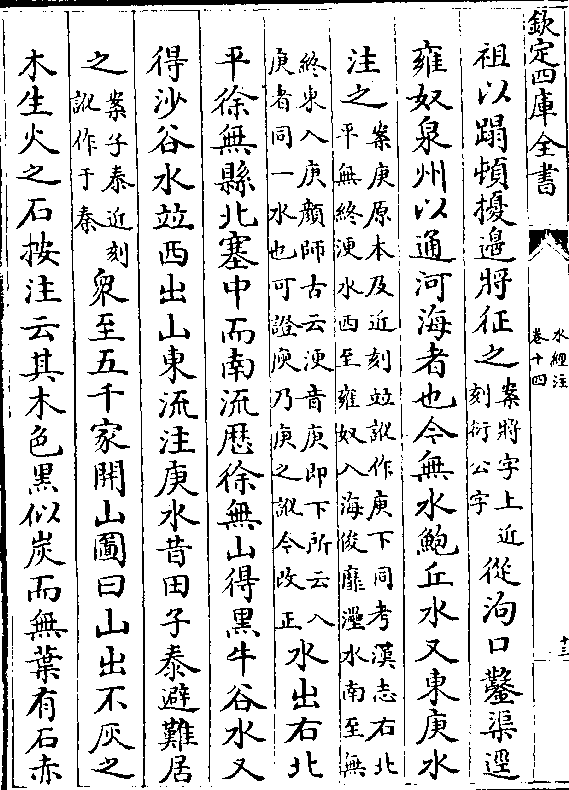 欽定四庫全書
水經注
卷十四
十三
祖以蹋頓擾邉將征之案將字上近
刻衍公字從泃口鑿渠逕
雍奴泉州以通河海者也今無水鮑丘水又東庚水
注之案庚原本及近刻竝訛作庾下同考漢志右北
平無終浭水西至雍奴入海俊靡灅水南至無
終東入庚顔師古云浭音庚即下所云入
庚者同一水也可證庾乃庚之訛今改正水出右北
平徐無縣北塞中而南流歷徐無山得黒牛谷水又
得沙谷水竝西出山東流注庚水昔田子泰避難居
之案子泰近刻
訛作于秦衆至五千家開山圖曰山出不灰之
木生火之石按注云其木色黒似炭而無葉有石赤